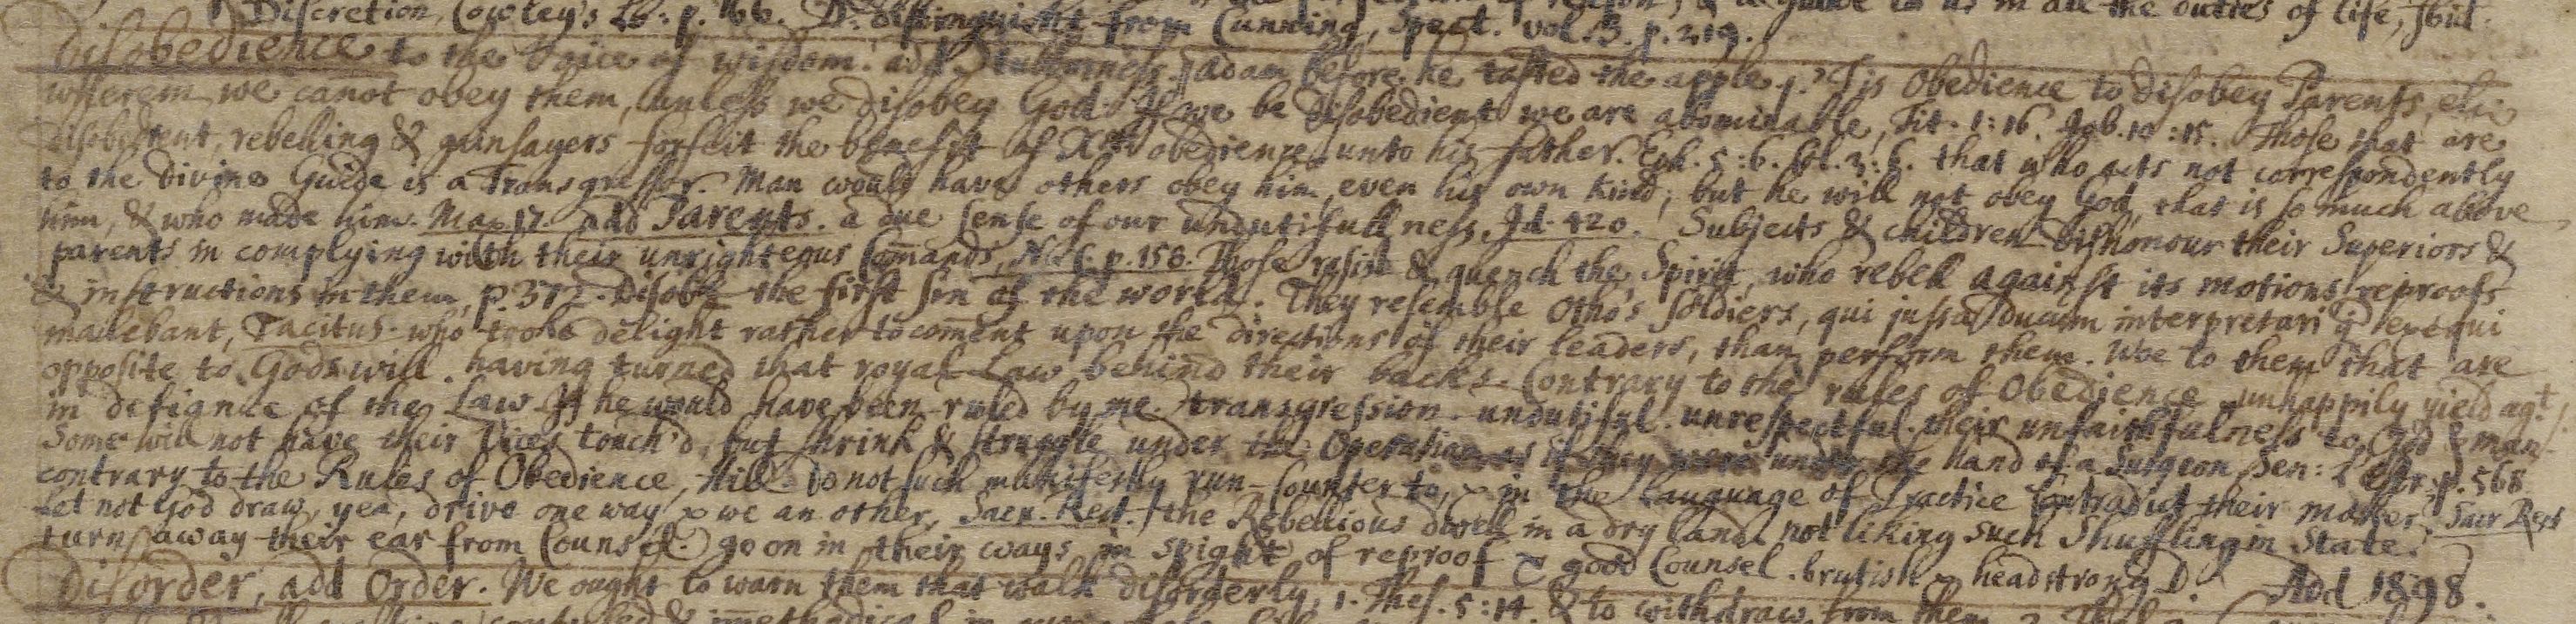 Discretion, Cowley's Lr: p. 166. D. distinguisht from Cunning, Spect. vol. 3. p. 219. of reason, & a guide to us in all the duties of life, Ibid.
Disobedience to the voice of wisdom. add Stubborness. Adam before he tasted the apple. 'Tis Obedience to disobey Parents, etc
wherein we canot obey them, unless we disobey God. If we be Disobedient we are abominable, Tit. 1:16. Job. 10:15. Those that are
disobedient, rebelling & gainsayers forfeit the benefit of Xts obedience unto his father. Eph. 5:6. Col. 3:6. that who acts not correspondently
to the Divine Guide is a Transgressor. Man would have others obey him, even his own kind, but he will not obey God, that is so much above
him, & who made him. Max 17. add Parents. a due sense of our undutifullness, Id. 420. Subjects & children dishonour their Superiors &
parents in complying with their unrighteous Comands, p. 158. Those resist & quench the Spirit, who rebell against its motions reproofs
& instructions in them, p. 372. Disobe the first sin of the world. They resemble Otho's soldiers, qui jussa ducum interpretari q̄ exequi
malebant, Tacitus. who tooke delight rather to coment upon the directions of their leaders, than perform them. Woe to them that are
opposite to Gods will. having turned that royal Law behind their backs. Contrary to the rules of Obedience unhappily yield agt
in defiance of the Law. If he would have been ruled by me. transgression. undutiful. unrespectful. their unfaithfulness to God & man.
Some will not have their Vices touch'd, but shrink & struggle under the Operation as if they were under the hand of a Surgeon Sen: p. 568
contrary to the Rules of Obedience, do not such manifestly run counter to, & in the Language of Practice Contradict their maker. Sacr Rept
Let not God draw, yea, drive one way & we an other, Sacr. Rect. the Rebellious dwell in a dry land not liking such Shuffling in State.
turn away their ear from Counsel. go on in their ways in spight of reproof & good Counsel. brutish & headstrong D. Add 1898.
Disorder, add Order. We ought to warn them that walk disorderly, 1. Thes. 5:14. & to withdraw from them